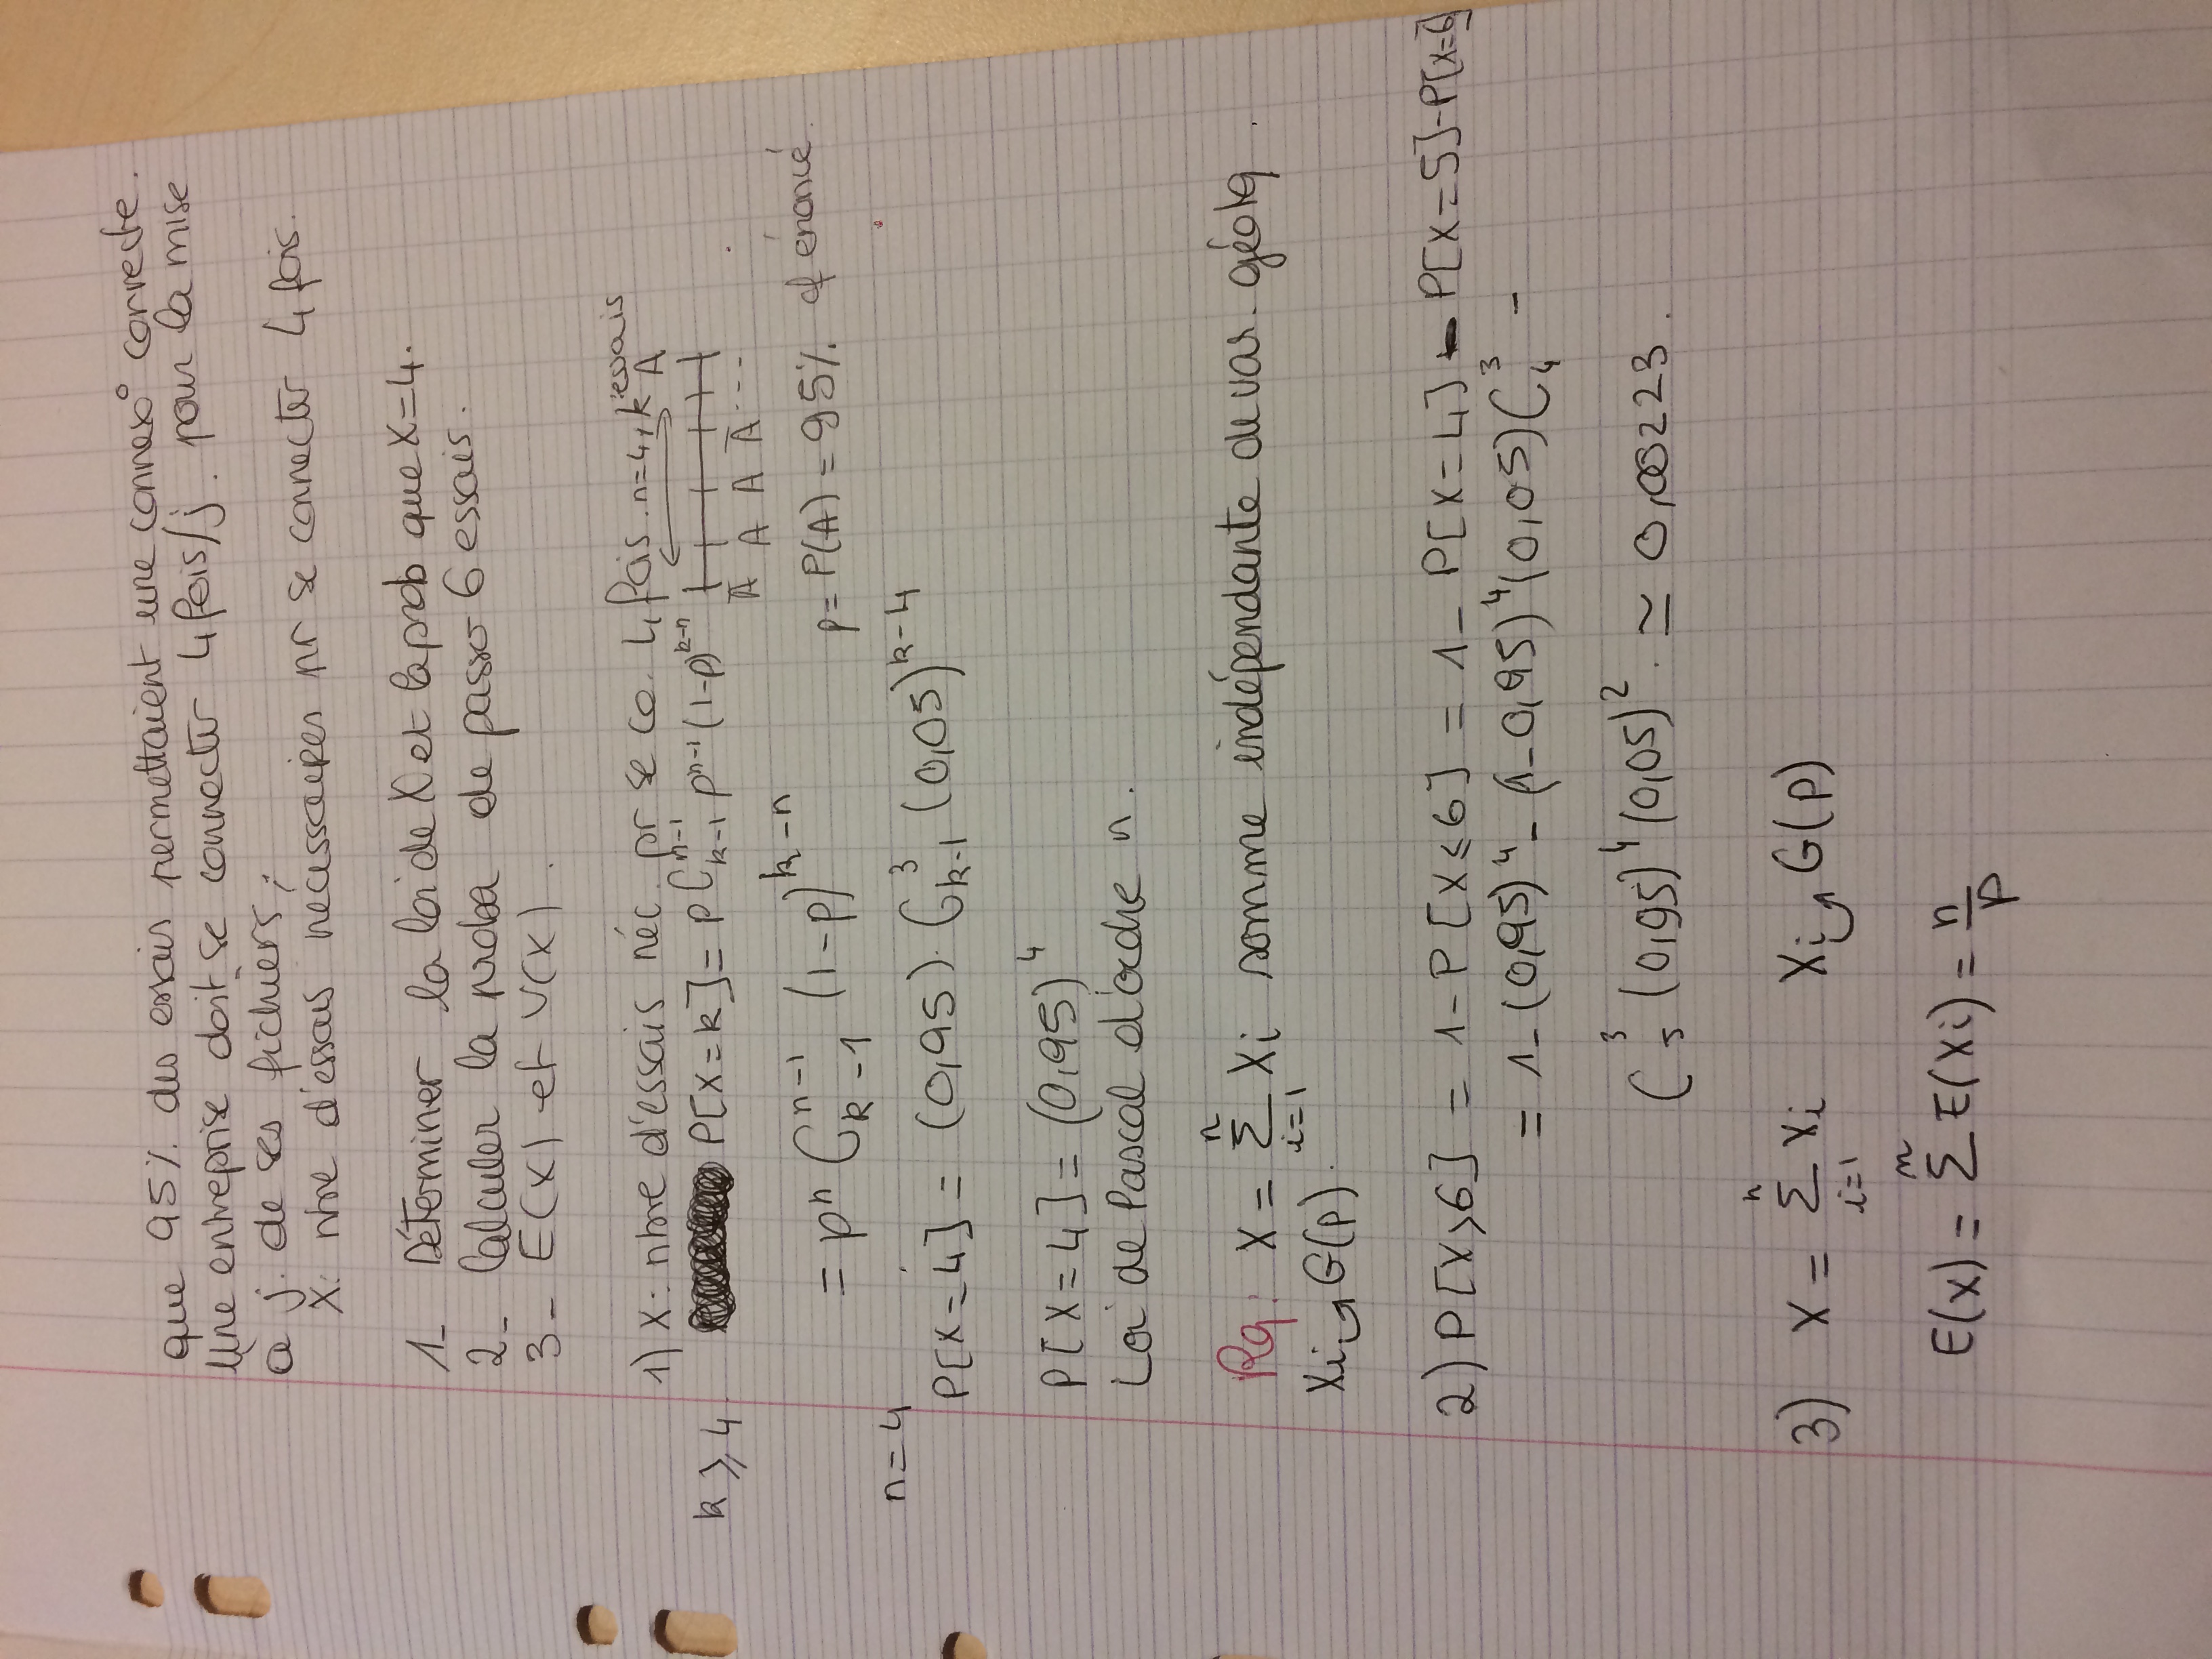 que 95% des essais permettaient une connex° correcte.
Une entreprise doit se connecter 4 fois/j. pour la mise
à j. de ses fichiers;
X: nbre d'essais nécessaires pr se connecter 4 fois.
1_ Déterminer la loi de X et la prob que X=4.
2_ Calculer la proba de passer 6 essais.
3_ E(X) et V(X).
1) X: nbre d'essais néc. pr se co. 4 fois. n=4, k essais
A
k ⩾ 4 P[X=k] = p C_{k-1}^{n-1} p^{n-1} (1-p)^{k-n}
Ā A A Ā ---
= p^n C_{k-1}^{n-1} (1-p)^{k-n} p = P(A) = 95% cf énoncé.
n=4
P[X=4] = (0,95). C_{k-1}^{3} (0,05)^{k-4}
P[X=4] = (0,95)^4
Loi de Pascal d'ordre n.
Rq: X = Σ_{i=1}^{n} Xi somme indépendante de var. géotq.
Xi ↪ G(p).
2) P[X>6] = 1-P[X⩽6] = 1_ P[X=4] - P[X=5]-P[X=6]
= 1_(0,95)^4 - (1-0,95)^4 (0,05) C_4^3 -
C_5^3 (0,95)^4 (0,05)^2. ≃ 0,00223.
3) X = Σ_{i=1}^{n} Xi Xi ↪ G(p)
E(X) = Σ^{n} E(Xi) = n/p